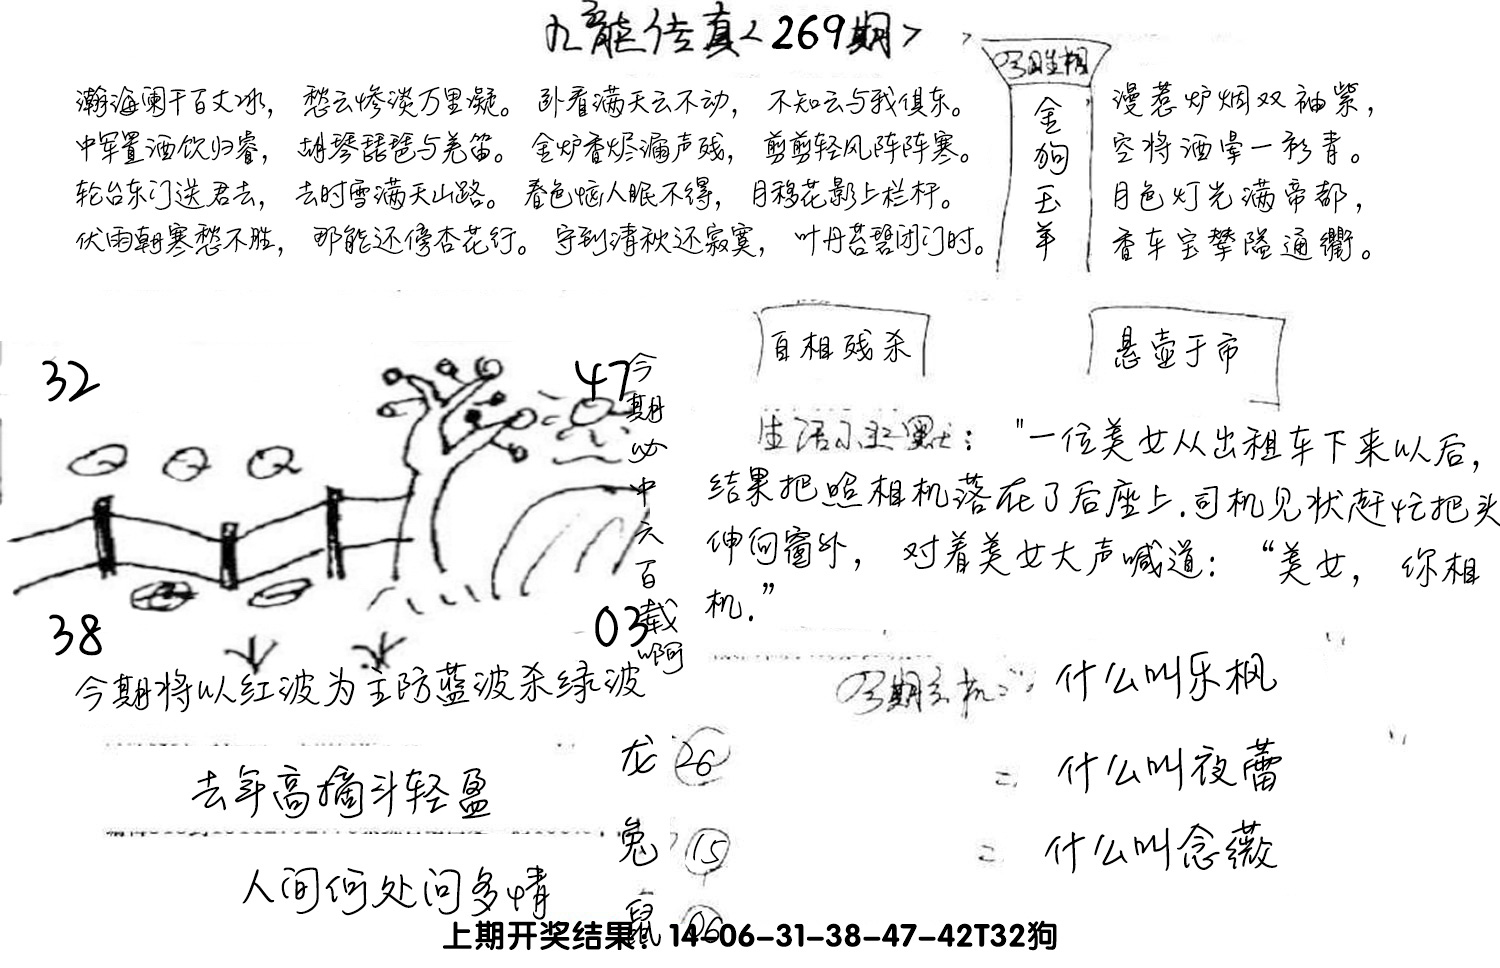 九龙传真<269期>
瀚海阑干百丈冰，愁云惨淡万里凝。卧看满天云不动，不知云与我俱东。
中军置酒饮归客，胡琴琵琶与羌笛。金炉香烬漏声残，剪剪轻风阵阵寒。
轮台东门送君去，去时雪满天山路。春色恼人眠不得，月移花影上栏杆。
伏雨朝寒愁不胜，那能还傍杏花行。守到清秋还寂寞，叶丹苔碧闭门时。
今日生相
金狗玉羊
漫惹炉烟双袖紫，
空将酒晕一衫青。
月色灯光满帝都，
香车宝辇隘通衢。
32
47
38
03
今期必中六百载啊
今期将以红波为主防蓝波杀绿波
自相残杀
悬壶于市
生活小幽默："一位美女从出租车下来以后，
结果把照相机落在了后座上.司机见状赶忙把头
伸向窗外，对着美女大声喊道：“美女，你相
机.”
今期玄机：什么叫乐枫
= 什么叫夜蕾
= 什么叫念薇
去年高摘斗轻盈
人间何处问多情
龙 26
兔 15
鼠 06
上期开奖结果：14-06-31-38-47-42T32狗